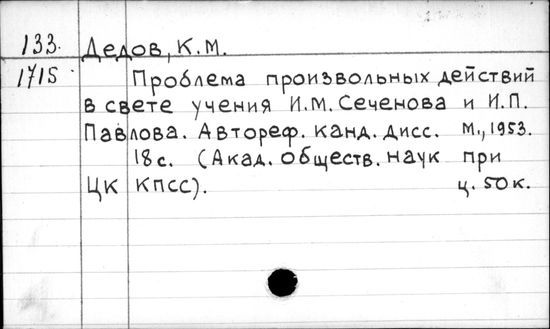 133. Дедов, К.М.
1715 Проблема произвольных действий
в свете учения И.М. Сеченова и И.П.
Павлова. Автореф. канд. дисс. М., 1953.
18 с. (Акад. обществ. наук при
ЦК КПСС). ц. 50 к.